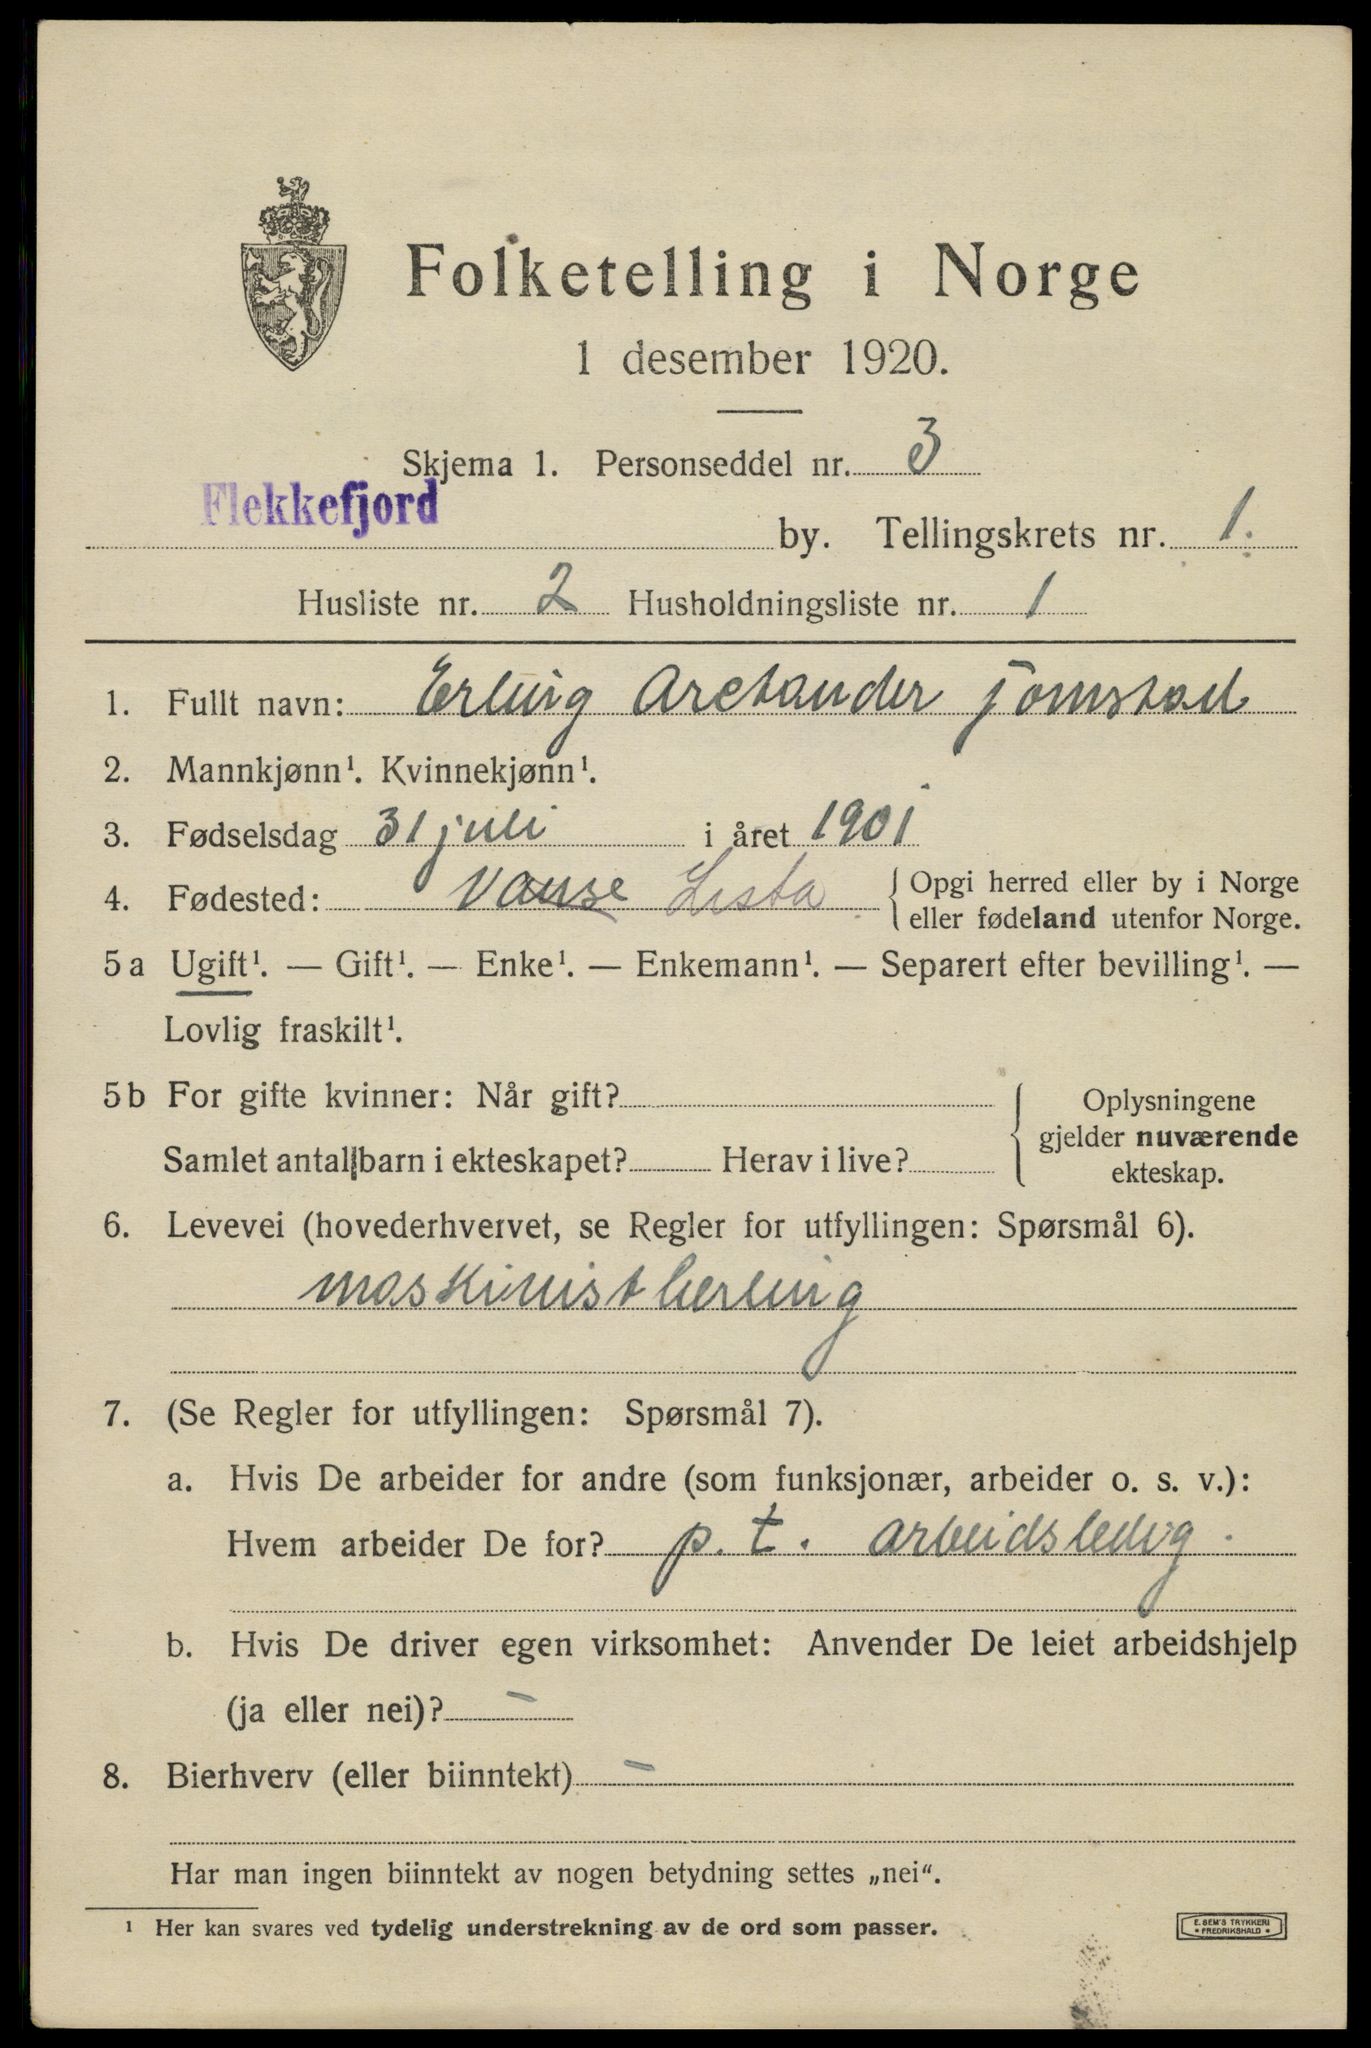 Folketelling i Norge
1 desember 1920.
Skjema 1. Personseddel nr. 3
Flekkefjord by. Tellingskrets nr. 1.
Husliste nr. 2 Husholdningsliste nr. 1
1. Fullt navn: Erling Arctander Jomstad
2. Mannkjønn¹. Kvinnekjønn¹.
3. Fødselsdag 31 juli i året 1901
4. Fødested: Vanse Lista { Opgi herred eller by i Norge
eller fødeland utenfor Norge.
5 a Ugift¹. — Gift¹. — Enke¹. — Enkemann¹. — Separert efter bevilling¹. —
Lovlig fraskilt¹.
5 b For gifte kvinner: Når gift?
Samlet antall barn i ekteskapet? Herav i live?
{ Oplysningene
gjelder nuværende
ekteskap.
6. Levevei (hovederhvervet, se Regler for utfyllingen: Spørsmål 6).
maskinistlærling
7. (Se Regler for utfyllingen: Spørsmål 7).
a. Hvis De arbeider for andre (som funksjonær, arbeider o. s. v.):
Hvem arbeider De for? p. t. arbeidsledig.
b. Hvis De driver egen virksomhet: Anvender De leiet arbeidshjelp
(ja eller nei)? –
8. Bierhverv (eller biinntekt) –
Har man ingen biinntekt av nogen betydning settes „nei“.
¹ Her kan svares ved tydelig understrekning av de ord som passer.
E. SEM'S TRYKKERI
* FREDRIKSHALD *